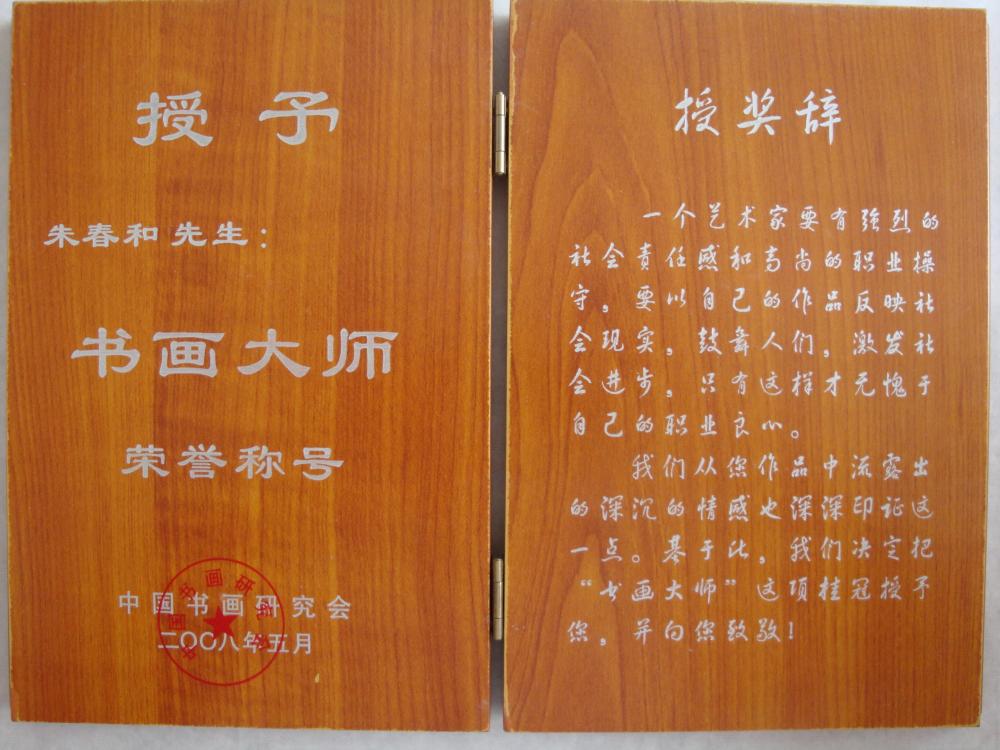 授予
朱春和 先生：
书画大师
荣誉称号
中国书画研究会
二〇〇八年五月
中国书画研究会
授奖辞
一个艺术家要有强烈的
社会责任感和高尚的职业操
守，要以自己的作品反映社
会现实，鼓舞人们，激发社
会进步，只有这样才无愧于
自己的职业良心。
我们从您作品中流露出
的深沉的情感也深深印证这
一点。基于此，我们决定把
“书画大师”这项桂冠授予
您，并向您致敬！